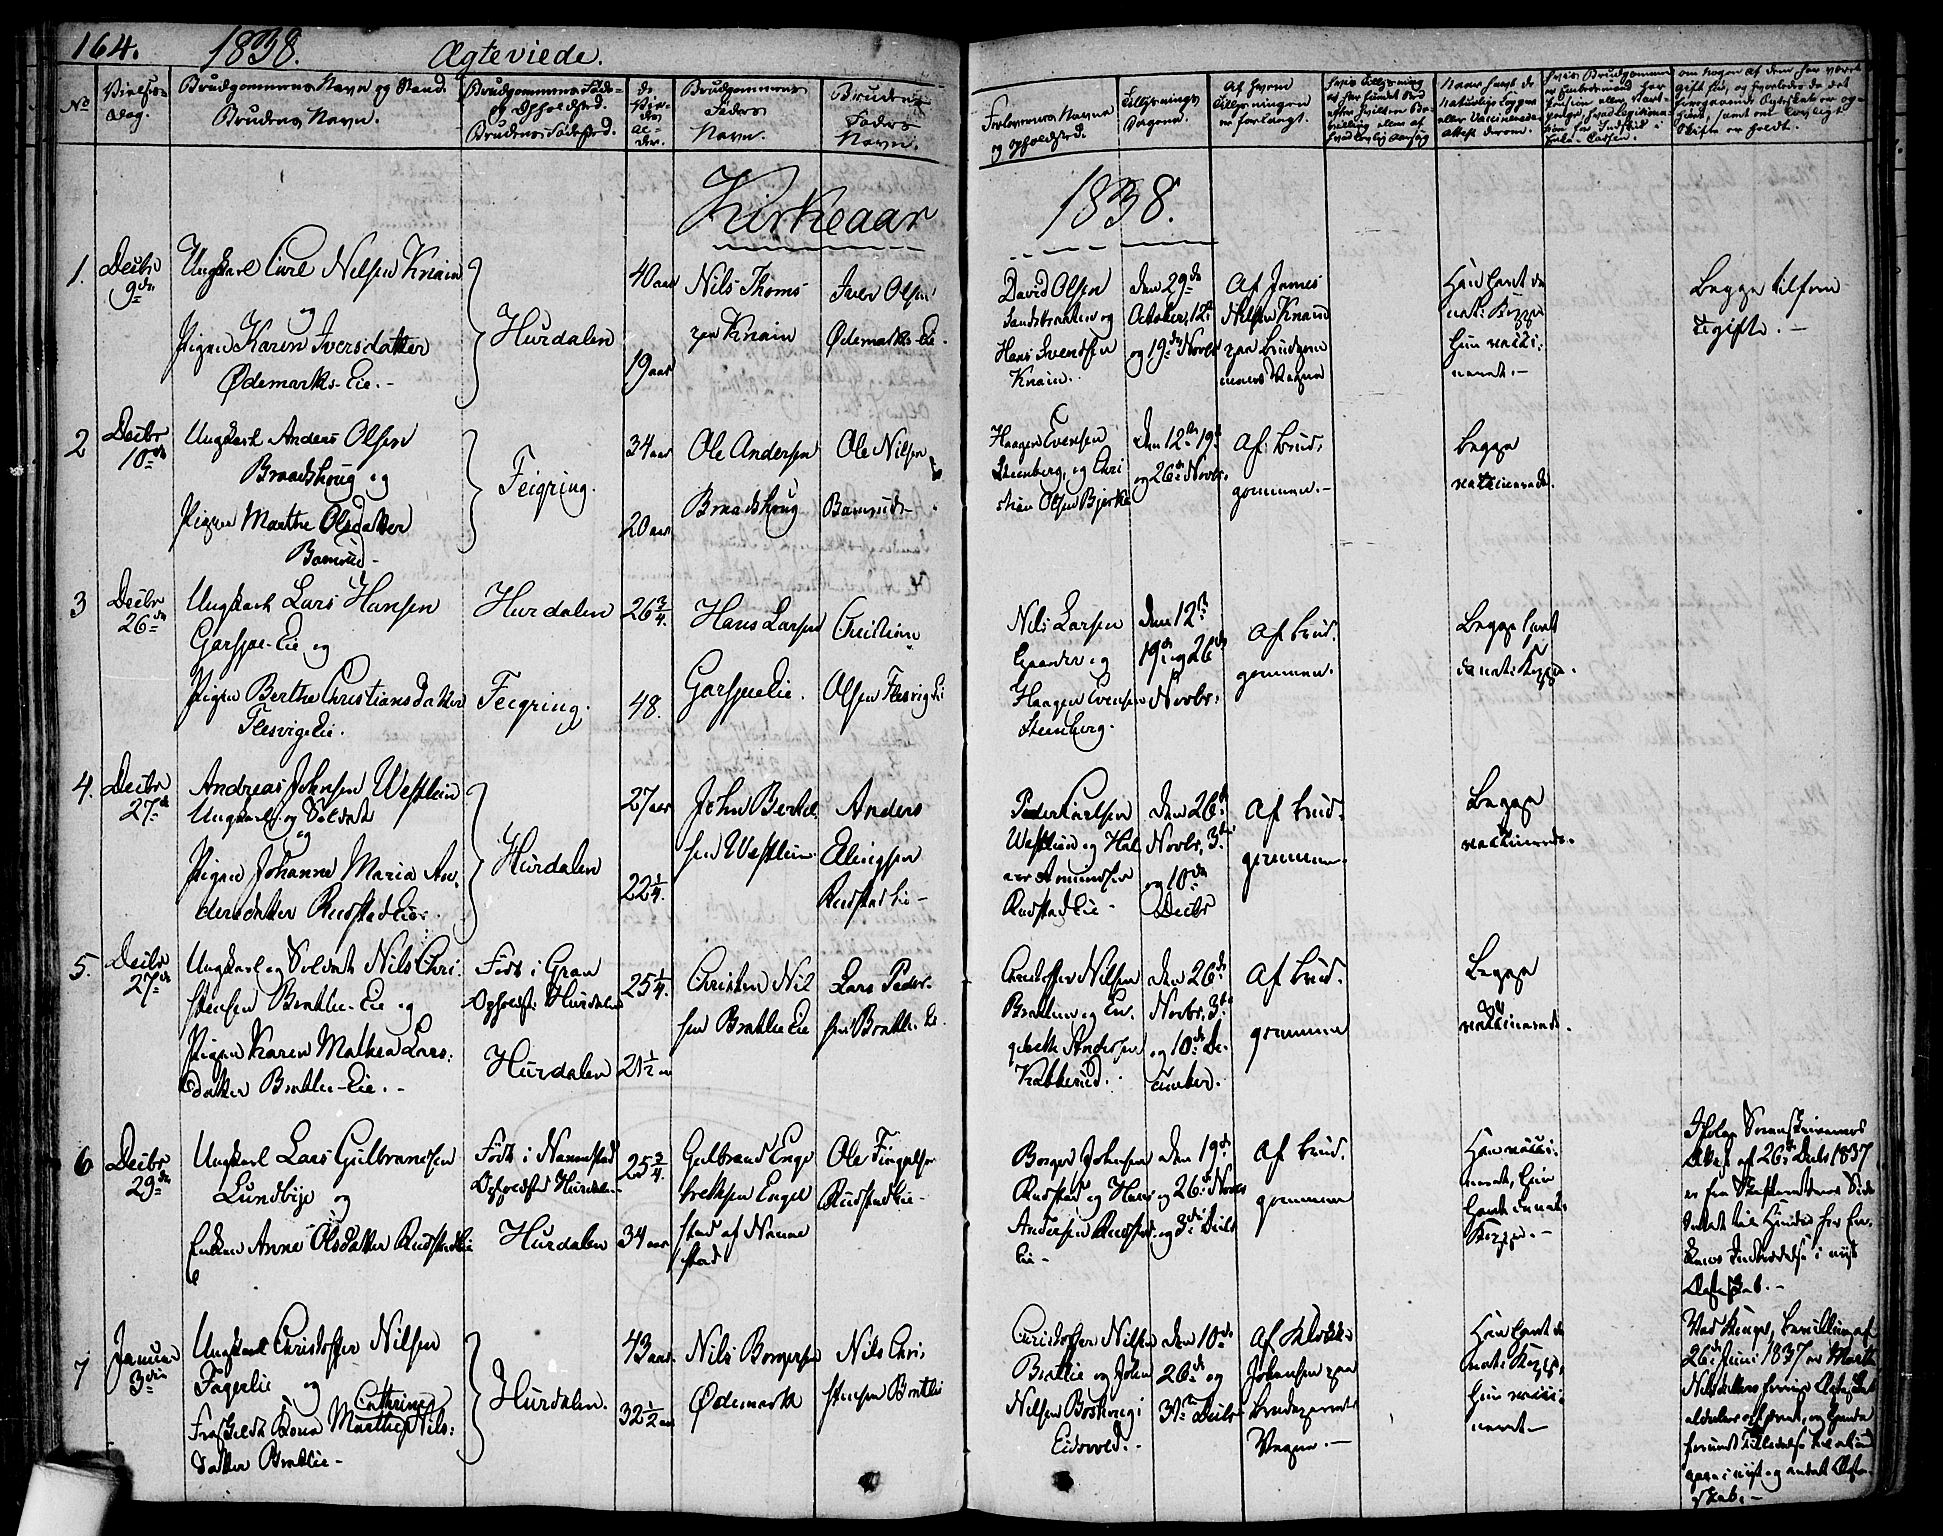 164. 1838. Ægteviede.
No
Vielses-Dag.
Brudgommens Navn og Stand.
Brudens Navn.
Brudgommens Føde-
og Opholdsted.
Brudens Fødested.
Brudgommens
Faders
Navn.
Brudens
Faders
Navn.
Forlovernes Navne
og Opholdsted.
Tillysnings
Dagene.
Af hvem
Tillysningen
er forlangt.
Kirkeaar 1838.
1.
Decbr
9de
Ungkarl Carl Nilsen Knain
og
Pigen Karen Iversdatter
Ødemarks-Eie.-
Hurdalen
40 aar
19 aar
Nils Thoms-
zen Knain
Iver Olsen
Ødemarks-Eie.
David Olsen
Sandsbraaten og
Hans Svendsen
Knain.
den 29de
October, 12te
og 19de Novbr
Af James
Nilsen Knain
paa Brudgom-
mens Vegne
Han havt de
nat: Kopper
Hun vacci-
neret.-
Begge tilforn
ugifte.-
2
Decbr
10de
Ungkarl Anders Olsen
Braadskoug og
Pigen Marthe Olsdatter
Bamrud-
Feigring.
34 aar
20 aar
Ole Andersen
Braadskoug
Ole Nilsen
Bamrud-
Haagen Evensen
Steenberg, og Chri
stian Olsen Bjerke
den 12te 19de
og 26de Novbr.
Af Brud-
gommen.-
Begge
vaccinerede.
3
Decbr
26de
Ungkarl Lars Hansen
Garsjøe-Eie og
Pigen Berthe Christiansdatter
Flesvigeie.
Hurdalen
Feigring.
26 3/4.
48.
Hans Larsen
Garsjøe Eie.
Christian
Olsen Flesvig Ei
Nils Larsen
og
Haagen Evensen
Steenberg.
den 12te
19de og 26de
Novbr.
Af Brud-
gommen.
Begge havt
de nat: Kopper.
4.
Decbr
27de
Andreas Johnsen Westlein
Ungkarl og Soldat
og
Pigen Johanne Maria An-
dersdatter Rudstadeie.
Hurdalen
27 aar
22 1/4.
John Bertel-
sen Westlein
Anders
Elingsen
Rudstadeie-
Peder Carlsen
Westlein og Hal-
vor Amundsen
Rudstadeie-
den 26de
Novbr, 3de
og 10de
Decbr
Af Brud-
gommen.
Begge
vaccinerede.
5.
Decbr
27de
Ungkarl og Soldat Nils Chri-
stensen Bratlie-Eie og
Pigen Karen Mathea Lars-
datter Bratlie-Eie.-
Født i Gran
Opholdst: Hurdalen
Hurdalen
25 1/4.
21 1/2 aar
Christen Nil
sen Bratlie Eie
Lars Peder-
sen Bratlie-Ei.
Christoffer Nilsen
Bratlien og En-
gebreth Andersen
Kabberud.
den 26de
Novbr, 3de
og 10de De-
cember.
Af Brud-
gommen
Begge
vaccinerede.
6
Decbr
29de
Ungkarl Lars Gulbrandsen
Lundbye og
Enken Anne Olsdatter Rudstadeie
Født i Nannestad
Opholdsted Hurdalen
Hurdalen
25 3/4.
34 aar
Gulbrand Enge
brethsen Engel
stad af Nanne
stad
Ole
Rudstadeie-
Borger Johnsen
Rudstad og Hans
Andersen Rudstad
Eie-
den 19de
og 26de Novbr
og 3de Decbr
Af Brud-
gommen
Han vacci-
neret, Hun
havt de nat:
Kopper.-
Ifølge Sorenskriverens
Attest af 26de Decbr 1837
er fra Skifteretten Side
Intet til Hinder for En-
kens Indtrædelse i nyt
Ægteskab.-
7
Januar
3die
Ungkarl Christoffer Nilsen
Fagerlie og
Fraskilt Kone Marthe Cathrine Nils-
datter Bratlie-
Hurdalen.
43 aar.
32 1/2 aar
Nils Borgersen
Ødemark
Nils Chri-
stensen Bratlie
Christoffer Nilsen
Bratlie og John
Nilsen Boshoug i
Eidsvold.-
den 10de
26de og
31te Decbr
Af Klokker
Johansen paa
Brudeparrets
Vegne.-
Han havt de
nat: Kopp:
Hun vacci-
neret-
Ved Kongl. Bevilling af
26de Juni 1837 er Marthe
Nilsdatters forrige Ægteskab
aldeles ophævet, og hende
forundt Tilladelse til at ind-
gaae i nyt og andet Ægte-
skab.-